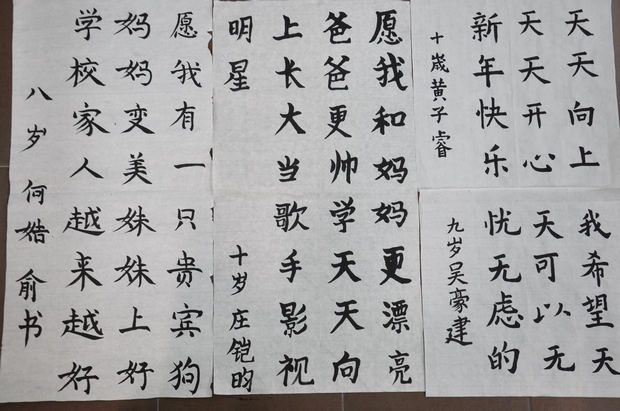 天天向上
天天开心
新年快乐
十歳黄子睿
我希望天
天可以无
忧无虑的
九岁吴豪建
愿我和妈妈更漂亮
爸爸更帅学天天向
上长大当歌手影视
明星
十岁庄铠昀
愿我有一只贵宾狗
妈妈变美姝姝上好
学校家人越来越好
八岁何皓俞书